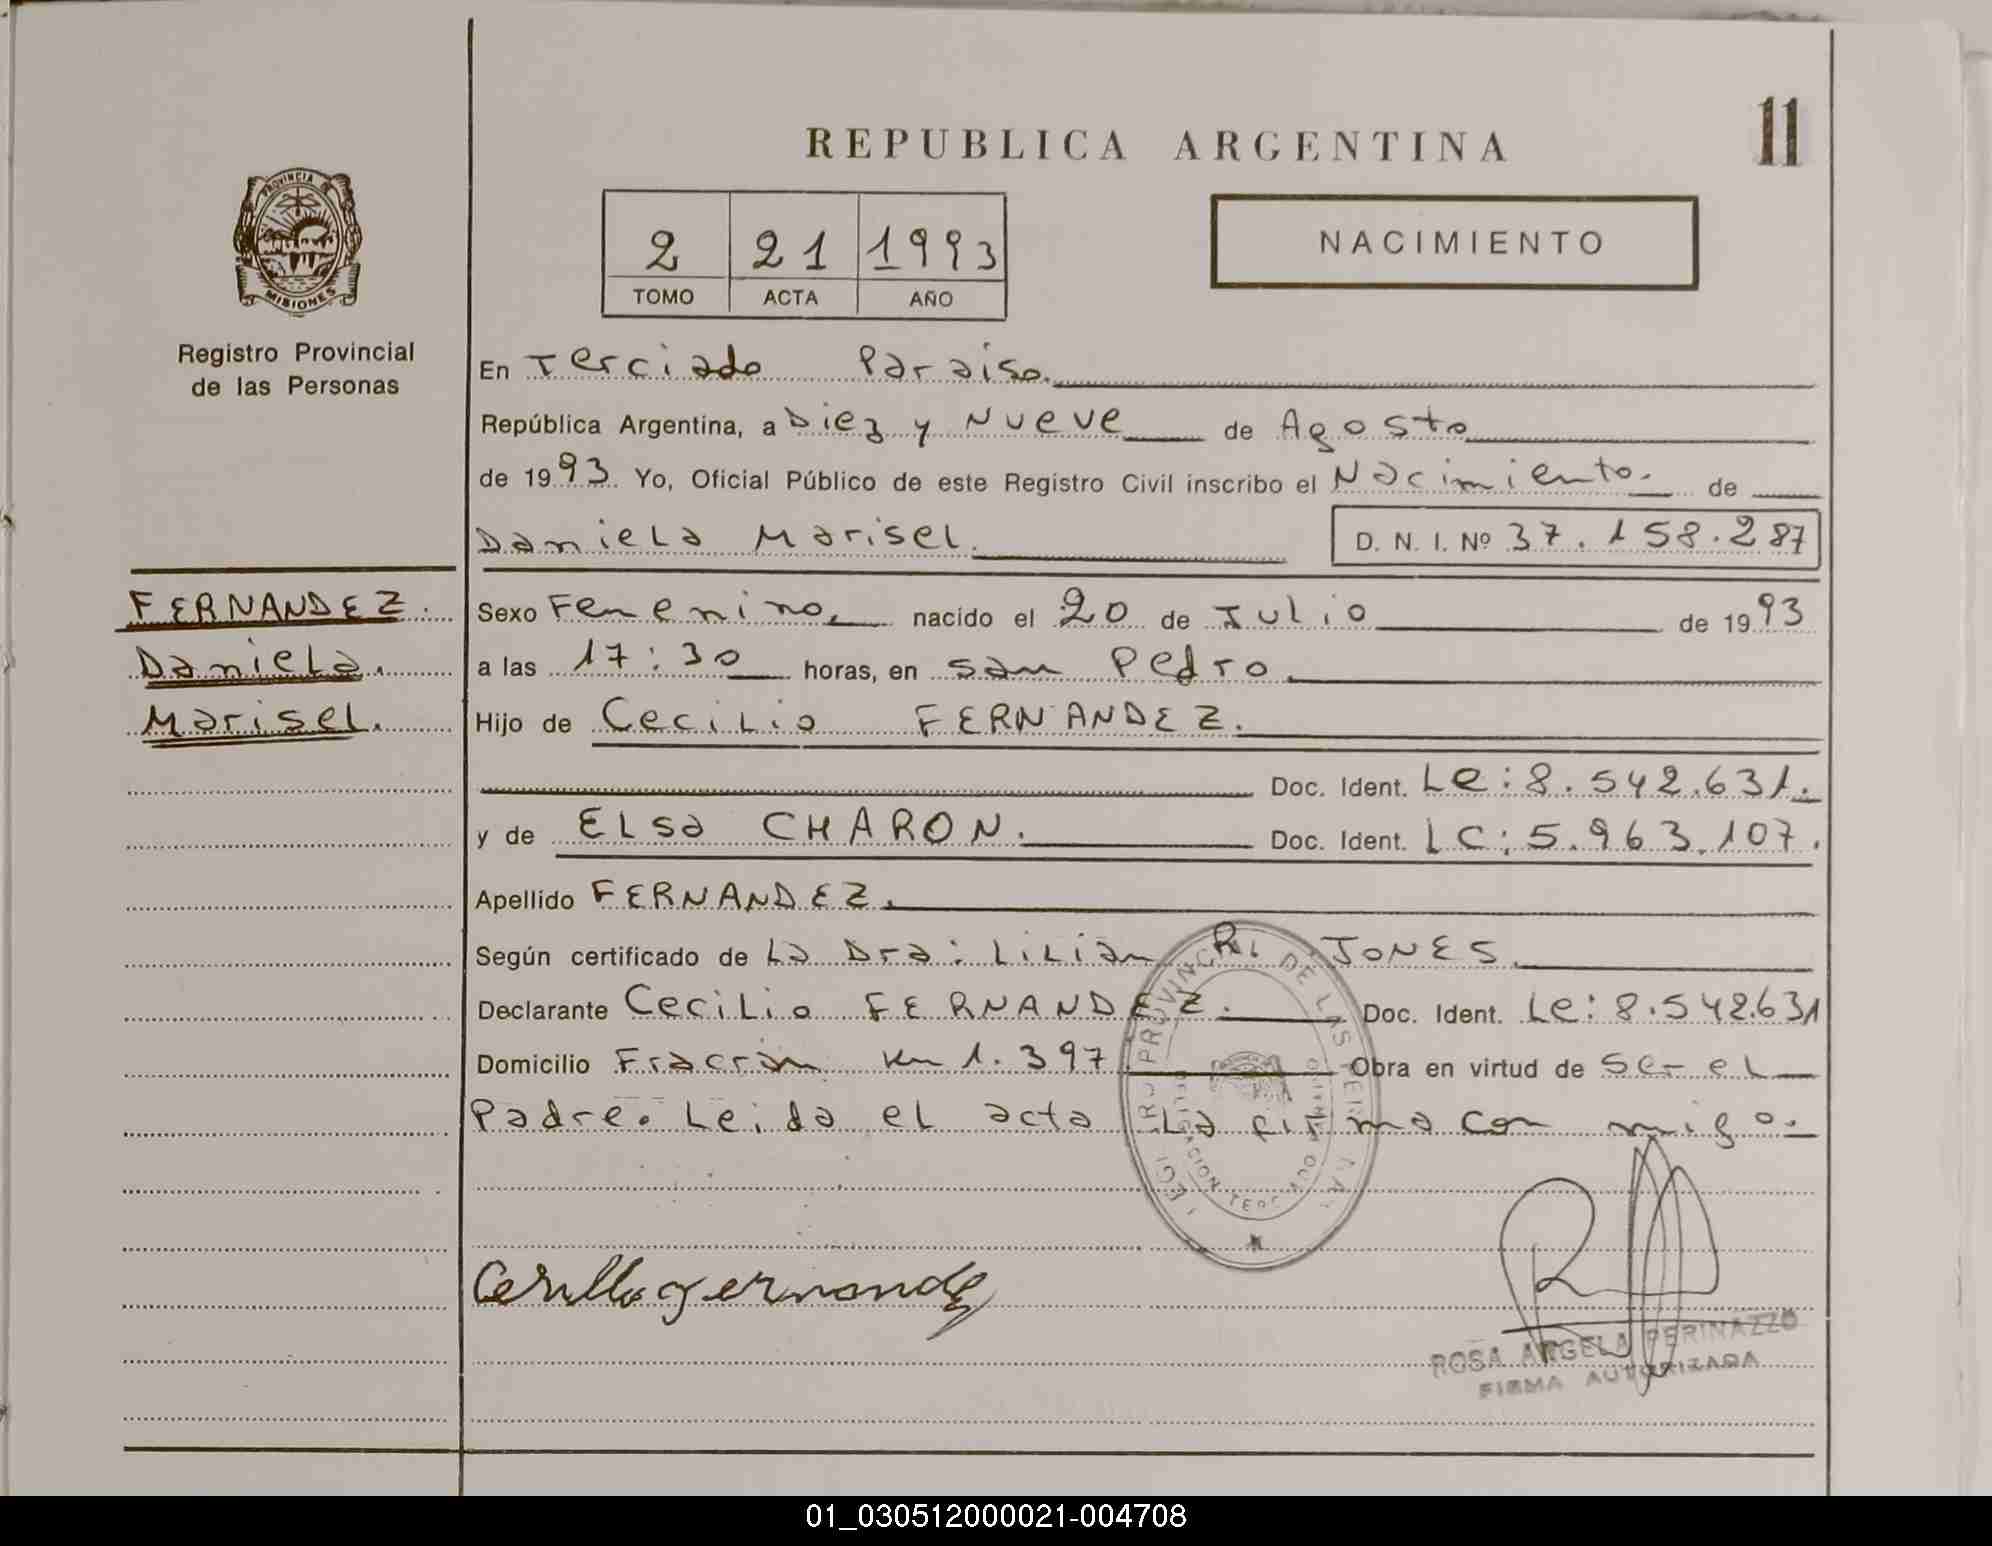 REPUBLICA ARGENTINA
11
PROVINCIA DE
MISIONES
Registro Provincial
de las Personas
2 21 1993
TOMO ACTA AÑO
NACIMIENTO
En Terciado Paraiso.
República Argentina, a Diez y Nueve de Agosto
de 1993 Yo, Oficial Público de este Registro Civil inscribo el Nacimiento. de
Daniela Marisel. D. N. I. Nº 37.158.287
FERNANDEZ.
Daniela.
Marisel.
Sexo Femenino. nacido el 20 de Julio de 1993
a las 17:30 horas, en San Pedro.
Hijo de Cecilio FERNANDEZ.
Doc. Ident. Le: 8.542.631.
y de Elsa CHARON. Doc. Ident. LC: 5.963.107.
Apellido FERNANDEZ.
Según certificado de La Dra: Lilian R. JONES.
Declarante Cecilio FERNANDEZ. Doc. Ident. Le: 8.542.631
Domicilio Fracrán Km 1.397 Obra en virtud de Ser el
Padre. Leida el acta La firma con migo.
PROVINCIAL DE LAS PER
ROSA ANGELA PERINAZZO
FIRMA AUTORIZADA
01_030512000021-004708